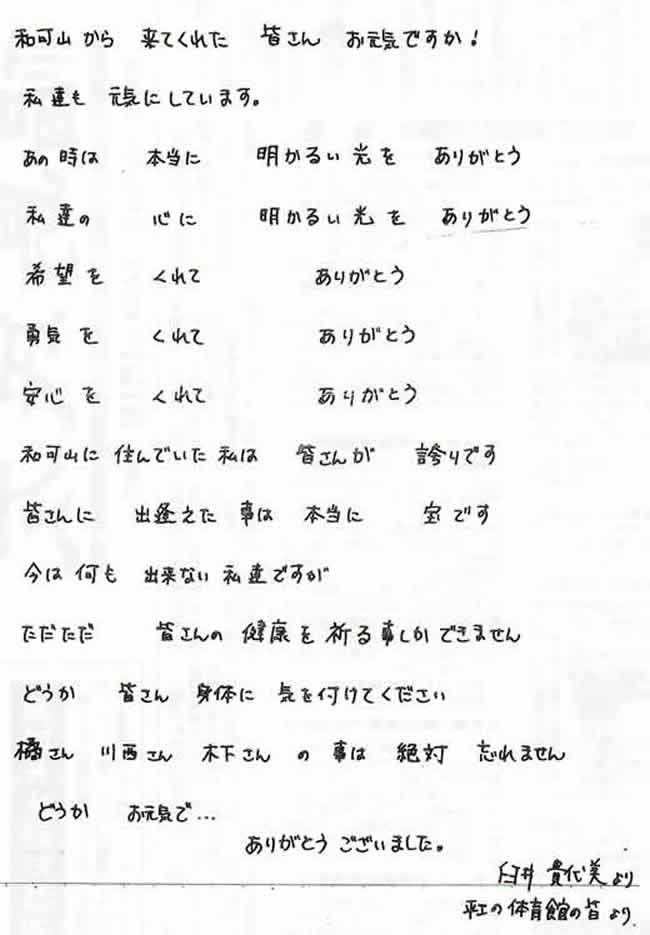 和可山から 来てくれた 皆さん お元気ですか！
私達も 元気にしています。
あの時は 本当に 明かるい光を ありがとう
私達の 心に 明かるい光を ありがとう
希望を くれて ありがとう
勇気を くれて ありがとう
安心を くれて ありがとう
和可山に 住んでいた 私は 皆さんが 誇りです
皆さんに 出逢えた 事は 本当に 宝です
今は 何も 出来ない 私達ですが
ただただ 皆さんの 健康を 祈る事しか できません
どうか 皆さん 身体に 気を付けてください
橘さん 川西さん 木下さん の 事は 絶対 忘れません
どうか お元気で…
ありがとう ございました。
臼井 貴代美 より
の体育館の皆より